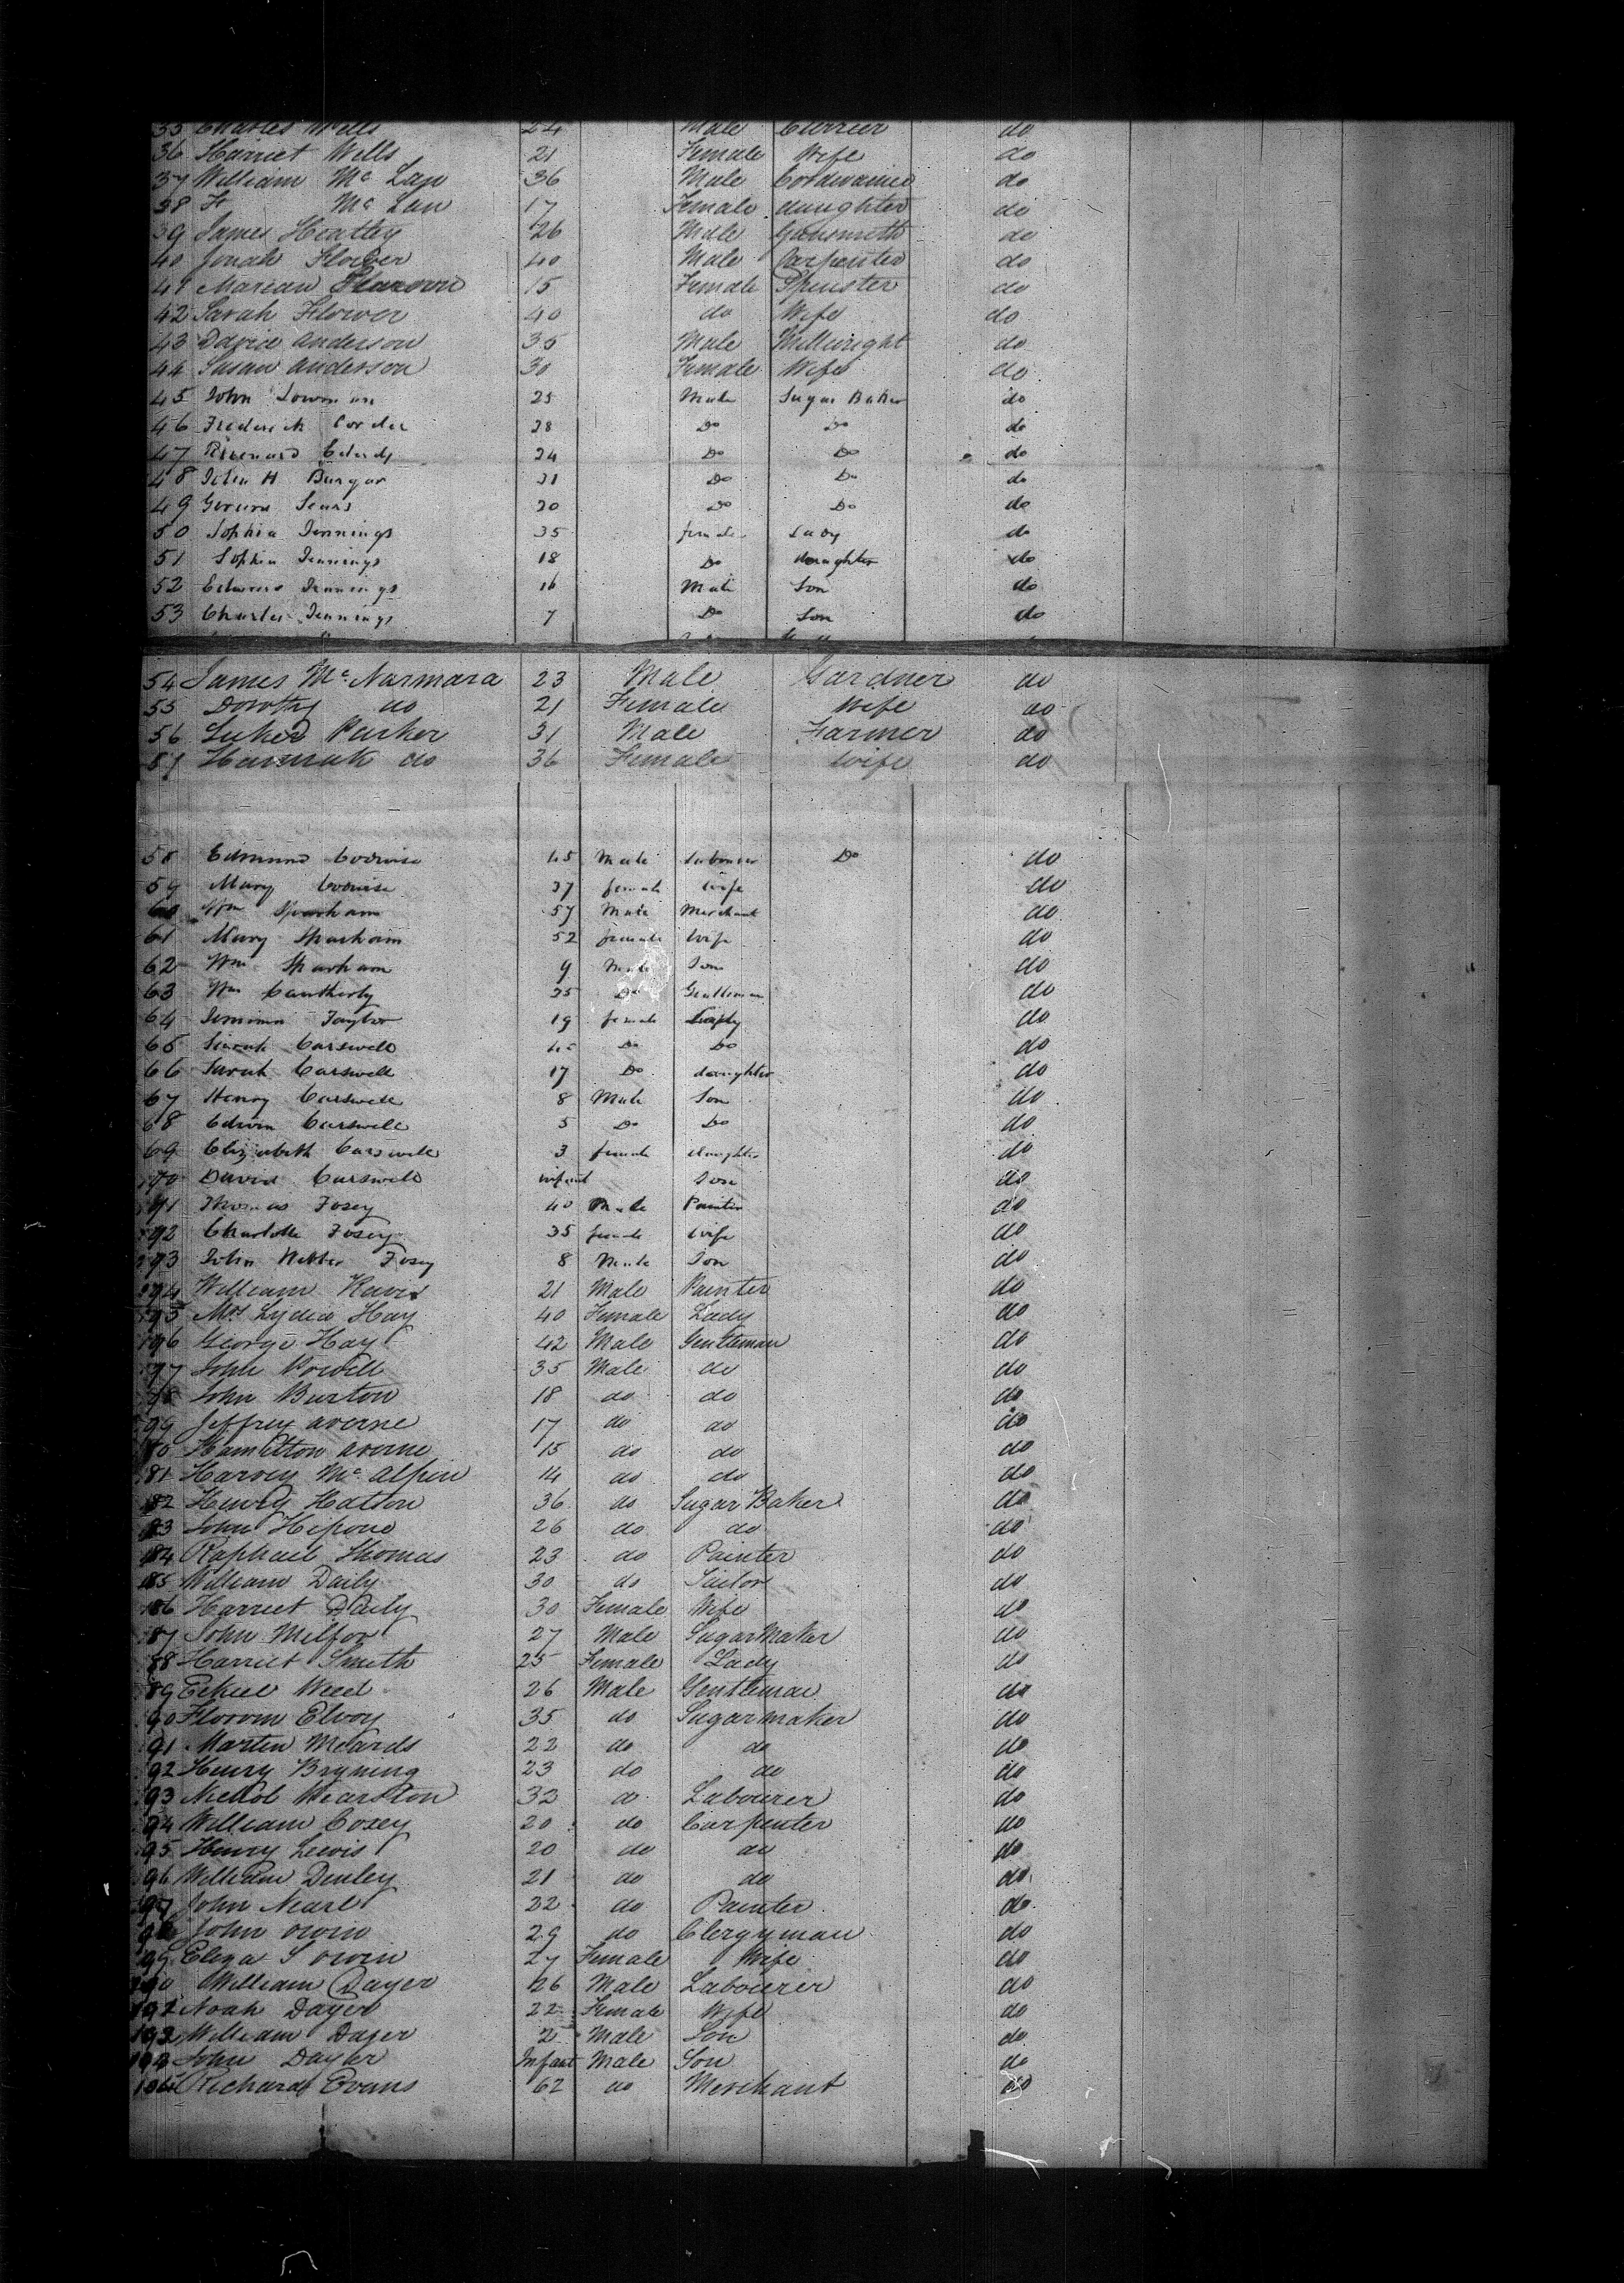 35 Charles Wells 24 Male Currier do
36 Harriet Wells 21 Female Wife do
37 William Mc Lan 36 Male Cordwainer do
38 Mc Lan 17 Female daughter do
39 James Heatley 26 Male Gunsmith do
40 Jonah Flower 40 Male Carpenter do
41 Marian 15 Female Spinster do
42 Sarah Flower 40 do Wife do
43 David Anderson 35 Male Millwright do
44 Susan Anderson 30 Female Wife do
45 John Lowman 25 Male Sugar Baker do
46 Frederick Corder 28 Do Do do
47 24 Do Do do
48 John H Burgar 31 Do Do do
49 Sears 30 Do Do do
50 Sophia Jennings 35 female Lady do
51 Sophia Jennings 18 Do daughter do
52 Edward Jennings 16 Male Son do
53 Charles Jennings 7 Do Son do
54 James Mc Narmara 23 Male Gardner do
55 Dorothy do 21 Female Wife do
56 Luker Parker 31 Male Farmer do
57 Hannah do 36 Female wife do
58 Edmund Codwise 45 Male Labourer Do do
59 Mary Codwise 37 female wife do
60 Wm Sparham 57 Male Merchant do
61 Mary Sparham 52 female wife do
62 Wm Sparham 9 Male Son do
63 Wm Cautherly 25 Do Gentleman do
64 Jemima Taylor 19 female do
65 Sarah Carswell 45 Do Do do
66 Sarah Carswell 17 Do daughter do
67 Henry Carswell 8 Male Son do
68 Edwin Carswell 5 Do Do do
69 Elizabeth Carswell 3 female daughter do
70 David Carswell infant Son do
71 Thomas Fosey 40 Male Painter do
72 Charlotte Fosey 35 female wife do
73 John Webber Fosey 8 Male Son do
74 William 21 Male Painter do
75 Mrs Lydia Hay 40 Female Lady do
76 George Hay 42 Male Gentleman do
77 John Powell 35 Male do do
78 John Burton 18 do do do
79 Jeffrey averne 17 do do do
80 Hamilton averne 15 do do do
81 Harvey Mc alpin 14 do do do
82 Henry Hatton 36 do Sugar Baker do
83 John Hipone 26 do do do
84 Raphael Thomas 23 do Painter do
85 William Daily 30 do Sailor do
86 Harriet Daily 30 Female Wife do
87 John Milfor 27 Male Sugar Maker do
88 Harriet Smith 25 Female Lady do
89 Weed 26 Male Gentleman do
90 Elvoy 35 do Sugar maker do
91 Marten Meards 22 do do do
92 Henry Bryning 23 do do do
93 Nickol Wearston 32 do Labourer do
94 William Coxey 20 do Carpenter do
95 Henry Lewis 20 do do do
96 William Denley 21 do do do
97 John Nearl 22 do Painter do
98 John owin 29 do Clergyman do
99 Eliza S owin 27 Female Wife do
William Dayer 26 Male Labourer do
Noah Dayer 22 Female Wife do
William Dayer 2 Male Son do
John Dayler Infant Male Son do
104 Richard Evans 62 do Merchant do